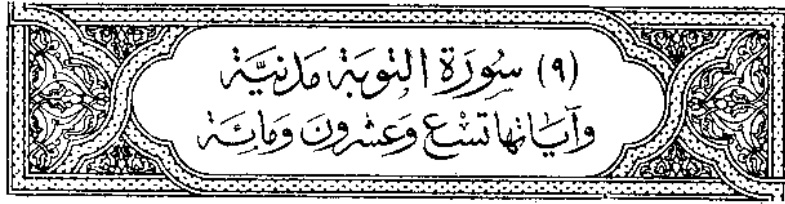 (٩) سُورَة التوبَة مَدَنيَّة
وآيَانها تسْع وَعشرون وَمائِة